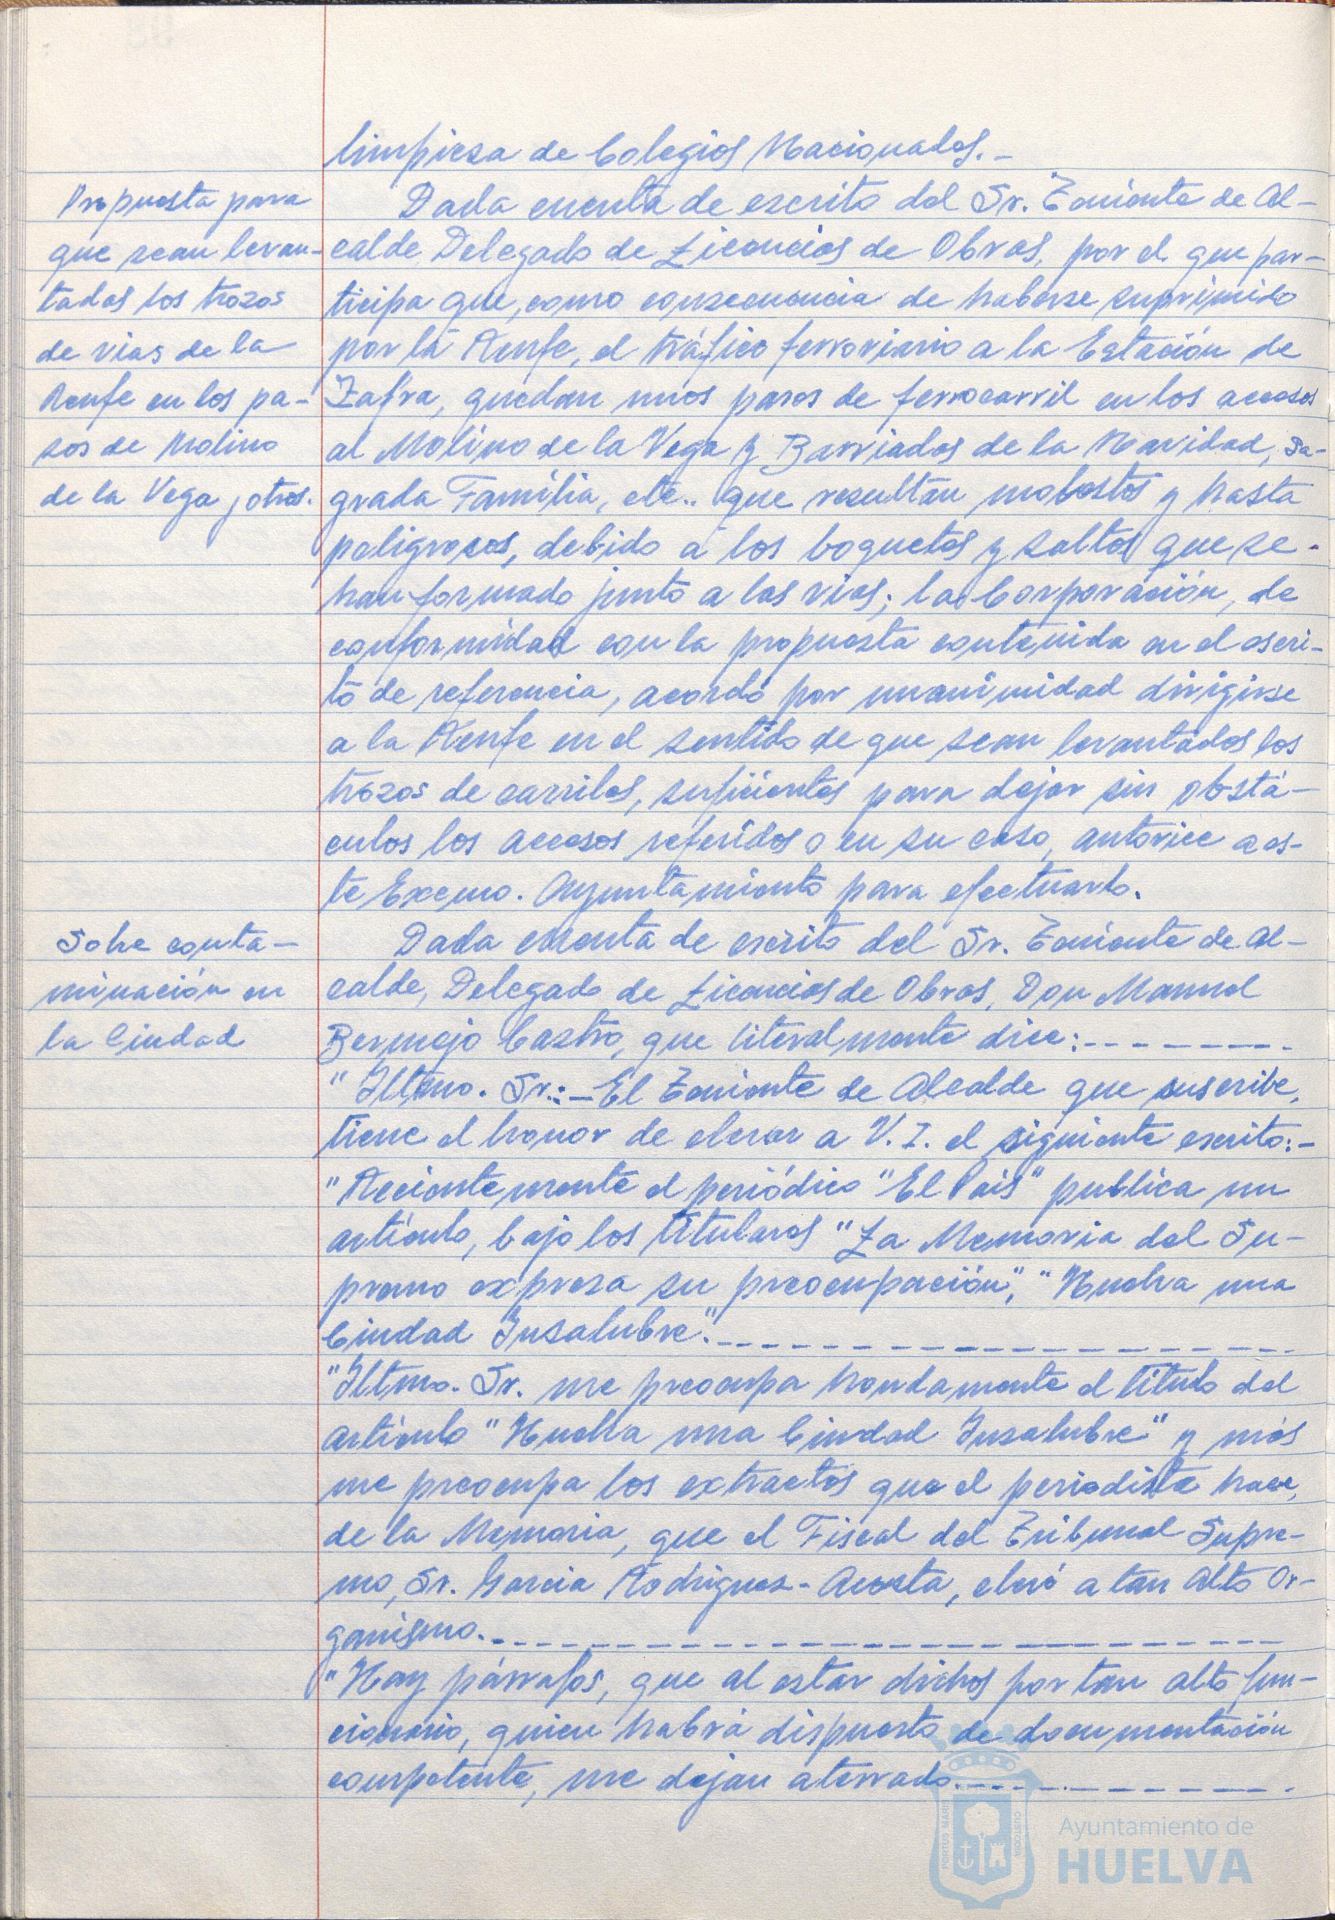 limpieza de Colegios Nacionales.-
Propuesta para
que sean levan-
tadas los trozos
de vias de la
Renfe en los pa-
sos de Molino
de la Vega y otros.
Dada cuenta de escrito del Sr. Teniente de Al-
calde Delegado de Licencias de Obras, por el que par-
ticipa que, como consecuencia de haberse suprimido
por la Renfe, el tráfico ferroviario a la Estación de
Zafra, quedan unos pasos de ferrocarril en los accesos
al Molino de la Vega y Barriadas de la Navidad, Sa-
grada Familia, etc.. que resultan molestos y hasta
peligrosos, debido a los boquetes y saltos que se
han formado junto a las vias; la Corporación, de
conformidad con la propuesta contenida en el escri-
to de referencia, acordó por unanimidad dirigirse
a la Renfe en el sentido de que sean levantados los
trozos de carriles, suficientes para dejar sin obstá-
culos los accesos referidos o en su caso, autorice a es-
te Excmo. Ayuntamiento para efectuarlo.
Sobre conta-
minación en
la Ciudad
Dada cuenta de escrito del Sr. Teniente de Al-
calde, Delegado de Licencias de Obras, Don Manuel
Bermejo Castro, que literalmente dice:---------
"Iltmo. Sr.:-El Teniente de Alcalde que suscribe,
tiene el honor de elevar a V.I. el siguiente escrito:-
"Recientemente el periódico "El Pais" publica un
artículo, bajo los titulares "La Memoria del Su-
premo expresa su preocupación", "Huelva una
Ciudad Insalubre".------------------
"Iltmo. Sr. me preocupa hondamente el título del
artículo "Huelva una Ciudad Insalubre" y más
me preocupa los extractos que el periodista hace,
de la Memoria, que el Fiscal del Tribunal Supre-
mo, Sr. Garcia Rodriguez-Acosta, elevó a tan Alto Or-
ganismo.------------------------
"Hay párrafos, que al estar dichos por tan alto fun-
cionario, quien habrá dispuesto de documentación
competente, me dejan aterrado.-----------
PORTUS MARIS
CUSTODIA
Ayuntamiento de
HUELVA